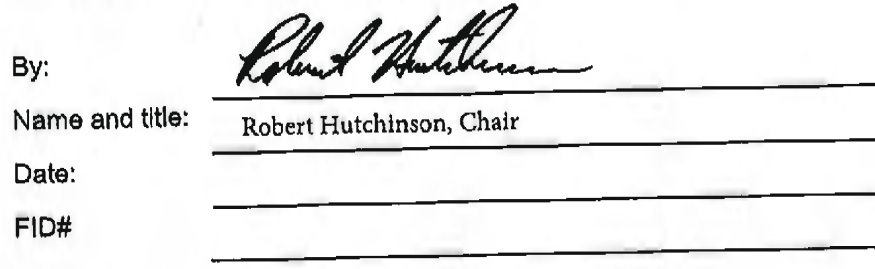 By: Robert Hutchinson
Name and title: Robert Hutchinson, Chair
Date:
FID#